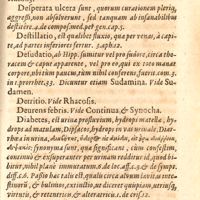 Desperata ulcera sunt, quorum curationem plerique
aggressi, non absolverunt, sed tanquam ab insanabilibus
destitere. 2. de compos. med. per gen. cap. 5.
Destillatio, est qualibet fluxio, qua per venas, à capi-
te, ad partes inferiores fertur. 2. aph. 12.
Desudatio, ab Hipp. sumitur vel pro sudore, circa tho-
racem & caput apparente, vel pro eo, qui ex toto manare
corpore, facit pauca, tum nihil conferens, fuerit. com. 3.
in 1. prorrhet. 33. Dicuntur etiam Sudamina. Vide Su-
damen.
Detritio. Vide Rhacosis.
Deurens febris. Vide Continua & Synocha.
Diabetes, est urina profluvium, hydrops matella, hy-
drops ad matulam, Dipsacos, hydrops in vas urinale,
synonyma sunt, qua significant, si statim,
contenti & exsuperanter per urinam reddatur, quod bi-
bitur, nihil plane immutatum. 6. de loc. affec. 3. & de sympt.
diff. 6. Passio hac talis est, qualis circa alvum lavitas inte-
stinorum, & bulimos, extinctio, ut diceret quispiam, utriusq,
virtutis, & retentricis, & alteratricis. de crisi 12.